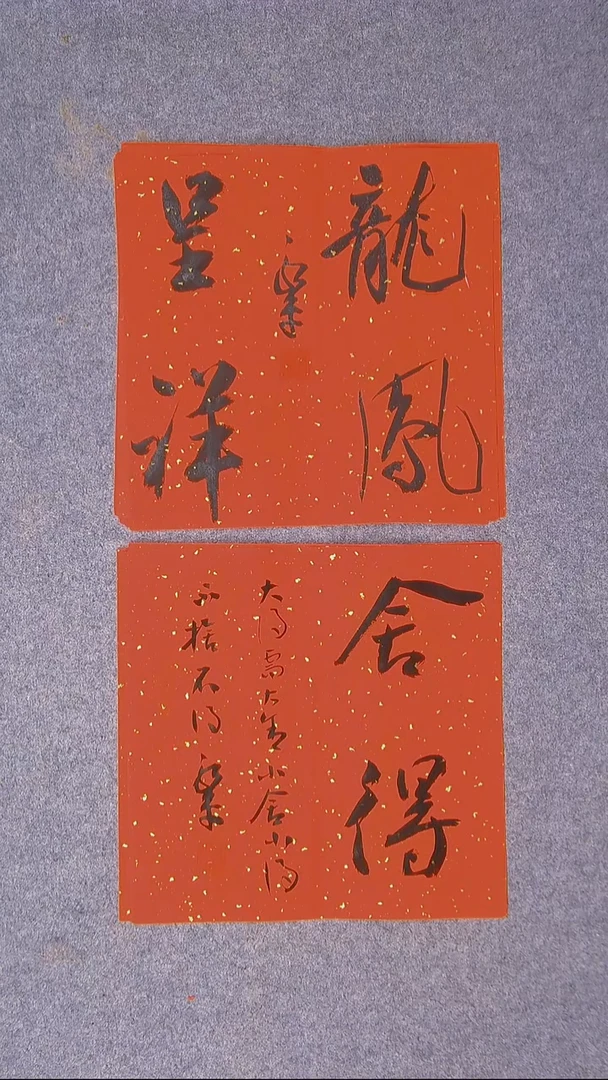 龍鳳
呈祥
舍得
大得需大舍小舍小得
不捨不得